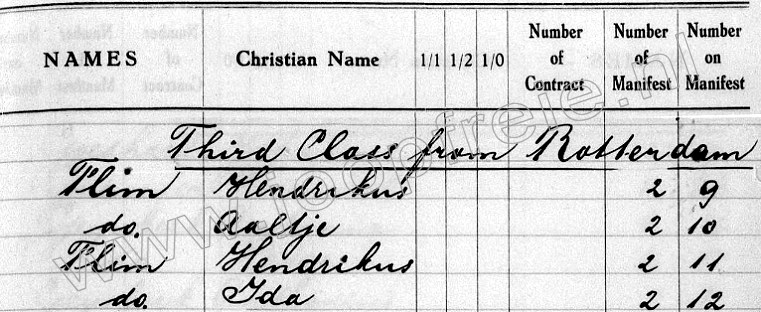 NAMES Christian Name 1/1 1/2 1/0 Number of Contract Number of Manifest Number on Manifest
Third Class from Rotterdam
Plim Hendrikus 2 9
do. Aaltje 2 10
Plim Hendrikus 2 11
do. Ida 2 12
www.joopfreie.nl